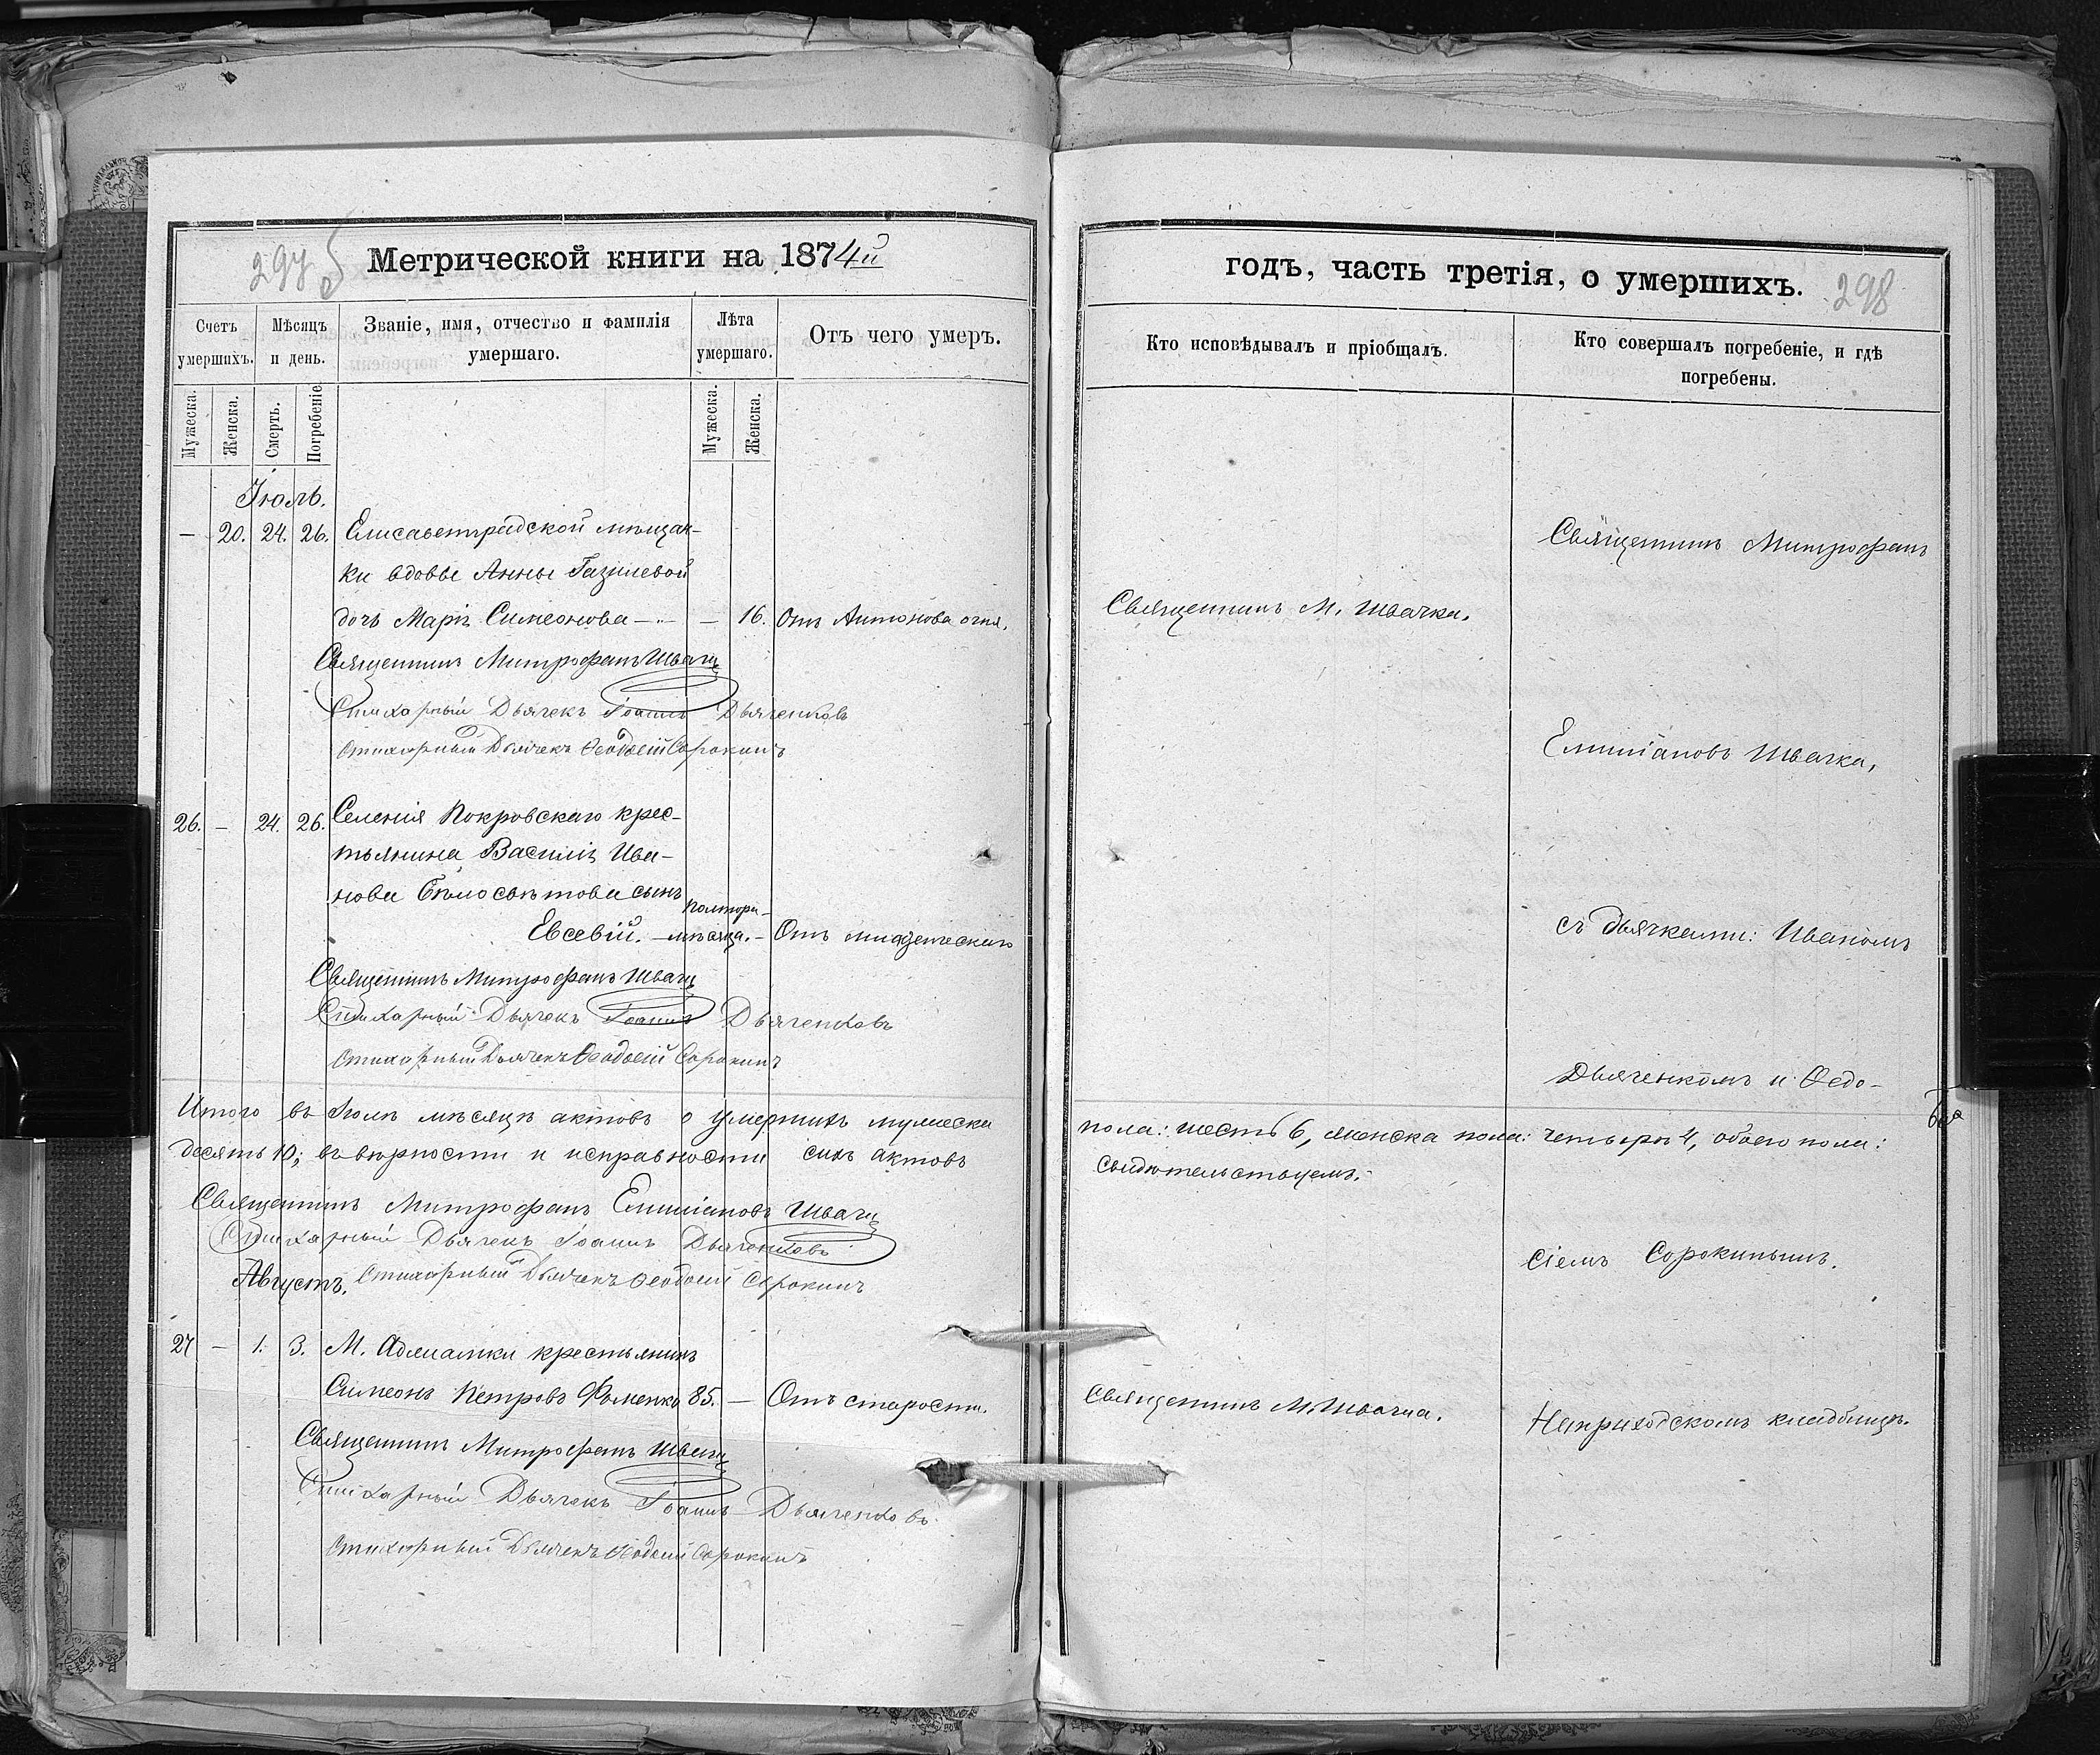 297 об
Метрической книги на 1874й
Счетъ умершихъ.
Мѣсяцъ и день.
Званіе, имя, отчество и фамилія умершаго.
Лѣта умершаго.
Отъ чего умеръ.
Мужеска.
Женска.
Смерть.
Погребеніе
Мужеска.
Женска.
Іюль.
— 20. 24. 26. Елисаветградской мѣщан-
ки вдовы Анны
дочь Марія Симеонова — — 16. Отъ Антонова огня.
Священникъ Митрофанъ Швачка
Стихарный Дьячекъ Іоаннъ Дьяченковъ
Стихарный Дьячекъ Ѳеодосій Сорокинъ
26. — 24. 26. Селенія Покровскаго крес-
тьянина Василія Ива-
нова Бѣлосвѣтова сынъ
Евсевій. — полтора- мѣсяца. — Отъ младенческаго
Священникъ Митрофанъ Швачка
Стихарный Дьячекъ Іоаннъ Дьяченковъ
Стихарный Дьячекъ Ѳеодосій Сорокинъ
Итого въ Іюлѣ мѣсяцѣ актовъ о умершихъ мужеска
десять 10; въ вѣрности и исправности сихъ актовъ
Священникъ Митрофанъ Емиліановъ Швачка
Стихарный Дьячекъ Іоаннъ Дьяченковъ
Августъ. Стихарный Дьячекъ Ѳеодосій Сорокинъ
27 — 1. 3. М. Аджамки крестьянинъ
Симеонъ Петровъ Фоменко 85. — Отъ старости.
Священникъ Митрофанъ Швачка
Стихарный Дьячекъ Іоаннъ Дьяченковъ
Стихарный Дьячекъ Ѳеодосій Сорокинъ
годъ, часть третія, о умершихъ. 298
Кто исповѣдывалъ и пріобщалъ.
Кто совершалъ погребеніе, и гдѣ погребены.
Священникъ Митрофанъ
Священникъ М. Швачка.
Емиліановъ Швачка,
съ дьячками: Иваномъ
Дьяченкомъ и Ѳедо-
пола: шесть 6, женска пола: четыре 4, обоего пола:
свидѣтельствуемъ:
сіемъ Сорокинымъ.
Священникъ М. Швачка.
На приходскомъ кладбищѣ.